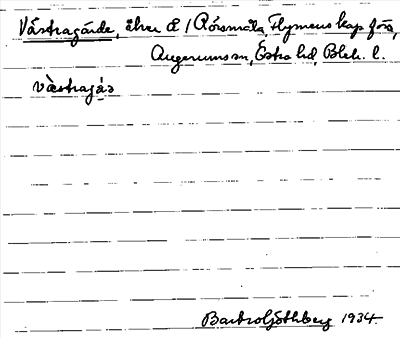 Västragårde, äker å 1 Rörsmåla, Flymens kap förs,
Augerums sn, Östra hd, Blek. l.
västragás
Bartro Göthberg 1934.